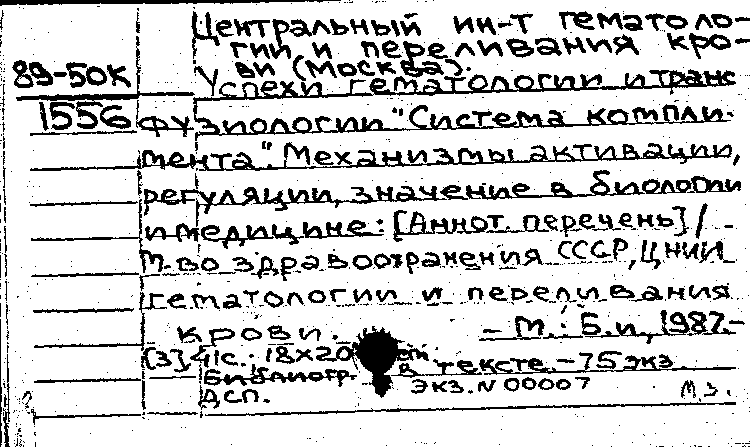 Центральный ин-т гематоло-
гии и переливания кро-
ви (Москва).
89-50К
Успехи гематологии и транс
1556
фузиологии "Система компли-
мента". Механизмы активации,
регуляции, значение в биологии
и медицине: [Аннот. перечень] /
М-во здравоохранения СССР, ЦНИИ
гематологии и переливания
крови. - М.: Б.и, 1987.-
[3] 41с.; 18х20 в тексте. - 75 экз
Библиогр. экз. N 00007
ДСП.